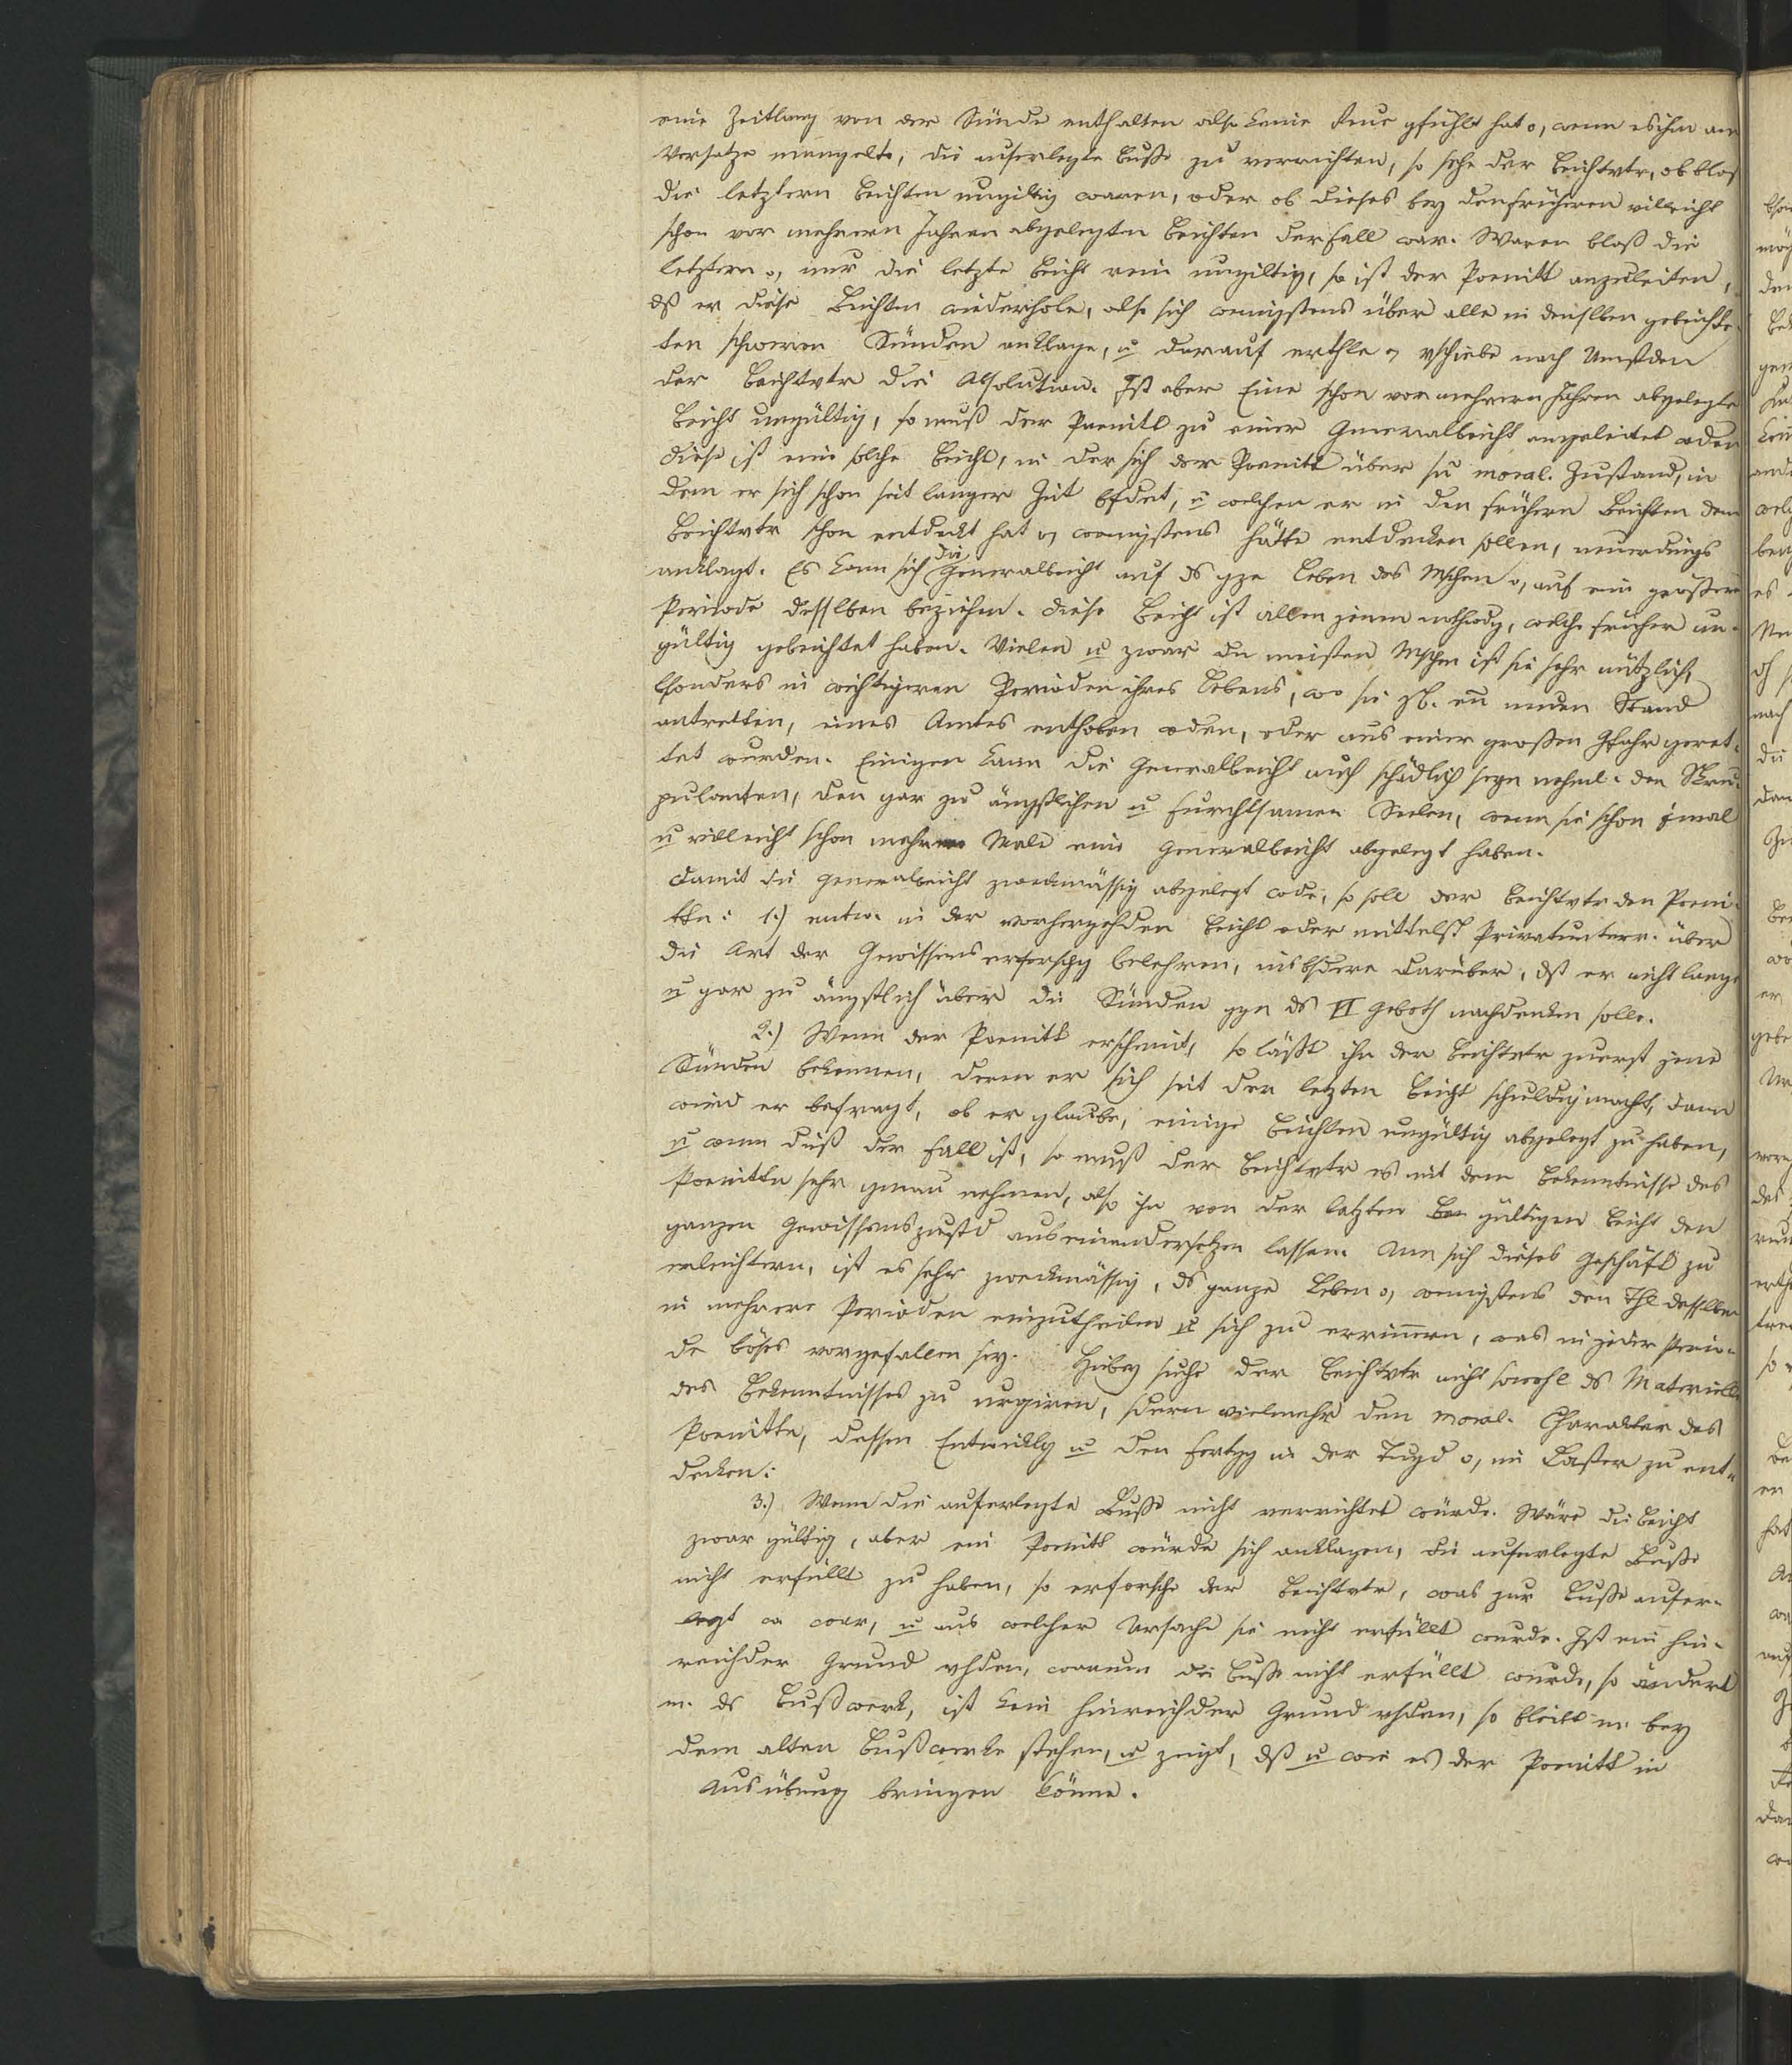 eine Zeitlang von der Sünde enthalten also keine Reue gfühlt hat o, wenn es ihm am
Vorsatze mangelte, die auferlegte Buße zu verrichten, so sehe der Beichtvtr, ob blos
die letztern Beichten ungiltig waren, oder ob dieses bey den frühern villeicht
schon vor mehrern Jahren abgelegten Beichten der Fall war. Waren bloß die
letztern o, nur die letzte Beicht rein ungiltig, so ist der Poenitt anzuleiten,
dß er diese Beichten wiederhole, also sich wenigstens über alle in denslben gebeichte-
ten schweren Sünden anklage, u darauf erthle o, vschiebe nach Umstden
der Beichtvtr die Absolution. Ist aber Eine schon vor mehrern Jahren abgelegte
Beicht ungültig, so muß der Poenitt zu einer Generalbeicht angeleitet wden
diese ist eine solche Beicht, in der sich der Poenitt über sn moral. Zustand, in
dem er sich schon seit langer Zeit bfdet, u welchen er in den frühern Beichten dem
Beichtvtr schon entdeckt hat o, wenigstens hätte entdecken sollen, neuerdings
anklagt. Es kann sich die Generalbeicht auf ds gze Leben des Mschen o, auf eine größere
Periode desslben beziehen. Diese Beicht ist allen jenen nothwdg, welche früher un-
gültig gebeichtet haben. Vielen u zwar den meisten Mschen ist sie sehr nützlich,
bsonders in wichtigeren Perioden ihres Lebens, wo sie zB. en neuen Stand
antretten, eines Amtes enthoben wden, oder aus einer großen Gfahr geret-
tet wurden. Einigen kann die Generalbeicht auch schädlich seyn nehml. den Skru-
pulanten, den gar zu ängstlichen u furchtsamen Seelen, wenn sie schon 1mal
u villeicht schon mehrere Male eine Generalbeicht abgelegt haben.
Damit die Generalbeicht zweckmässig abgelegt wde, so soll der Beichtvtr den Poeni-
tten: 1.) entw. in der vorhergehden Beicht oder mittelst Privatunterr. über
die Art der Gewissenserforschg belehren, insbsdere darüber, dß er nicht lange
u gar zu ängstlich über die Sünden ggn ds VI Geboth nachdenken solle.
2.) Wenn der Poenitt erscheint, so läßt ihn der Beichtvtr zuerst jene
Sünden bekennen, deren er sich seit der letzten Beicht schuldig macht, dann
wird er befragt, ob er glaube, einige Beichten ungültig abgelegt zu haben,
u wenn dieß der Fall ist, so muß der Beichtvtr es mit dem Bekenntnisse des
Poenittn sehr genau nehmen, also ihn von der letzten gültigen Beicht den
ganzen Gewissenszustd auseinandersetzen lassen. Um sich dieses Geschäft zu
erleichtern, ist es sehr zweckmässig, ds ganze Leben o, wenigstens den Thl desslben
in mehrere Perioden einzutheilen u sich zu errinnern, was in jeder Perio-
de böses vorgefallen sey. Hiebey suche der Beichtvtr nicht sowohl ds Materielle
des Bekenntnisses zu urgiren, sdern vielmehr den moral. Charakter des
Poenittn, dessen Entwicklg u den Fortgg in der Tugd o, im Laster zu ent-
decken:
3.) Wenn die auferlegte Buße nicht verrichtet würde. Wäre die Beicht
zwar gültig, aber ein Poenitt würde sich anklagen, die auferlegte Buße
nicht erfüllt zu haben, so erforsche der Beichtvtr, was zur Buße aufer-
legt war, u aus welcher Ursache sie nicht erfüllt wurde. Ist ein hin-
reichder Grund vhden, warum die Buße nicht erfüllt wurde, so ändert
m. ds Bußwerk, ist kein hinreichder Grund vhden, so bleibt m. bey
dem alten Bußwerke stehen, u zeigt, dß u wie es der Poenitt in
Ausübung bringen könne.